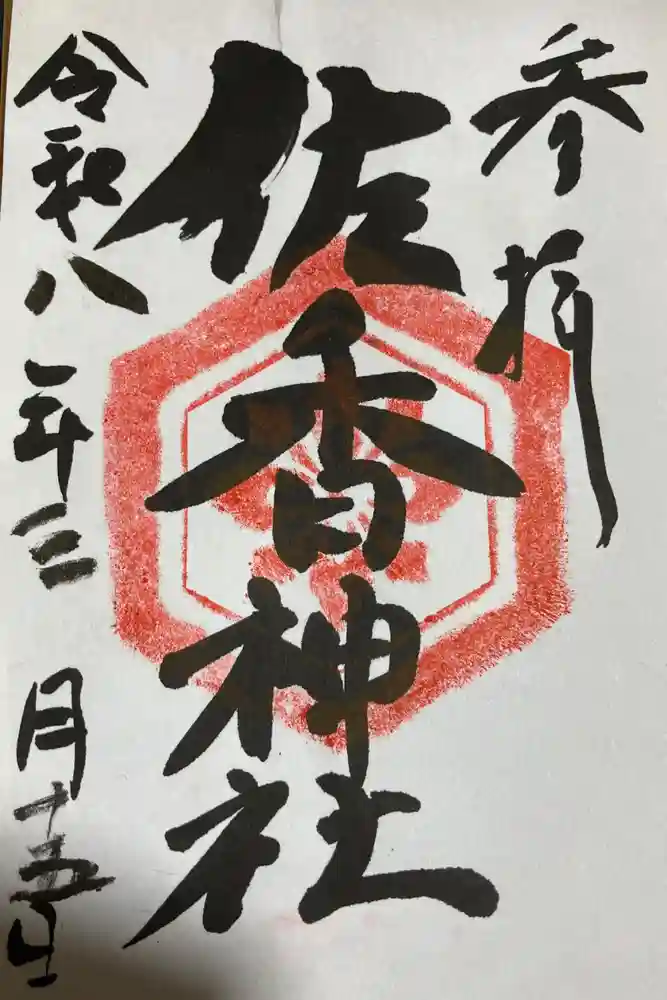 参拝
佐香神社
令和八年三月十五日